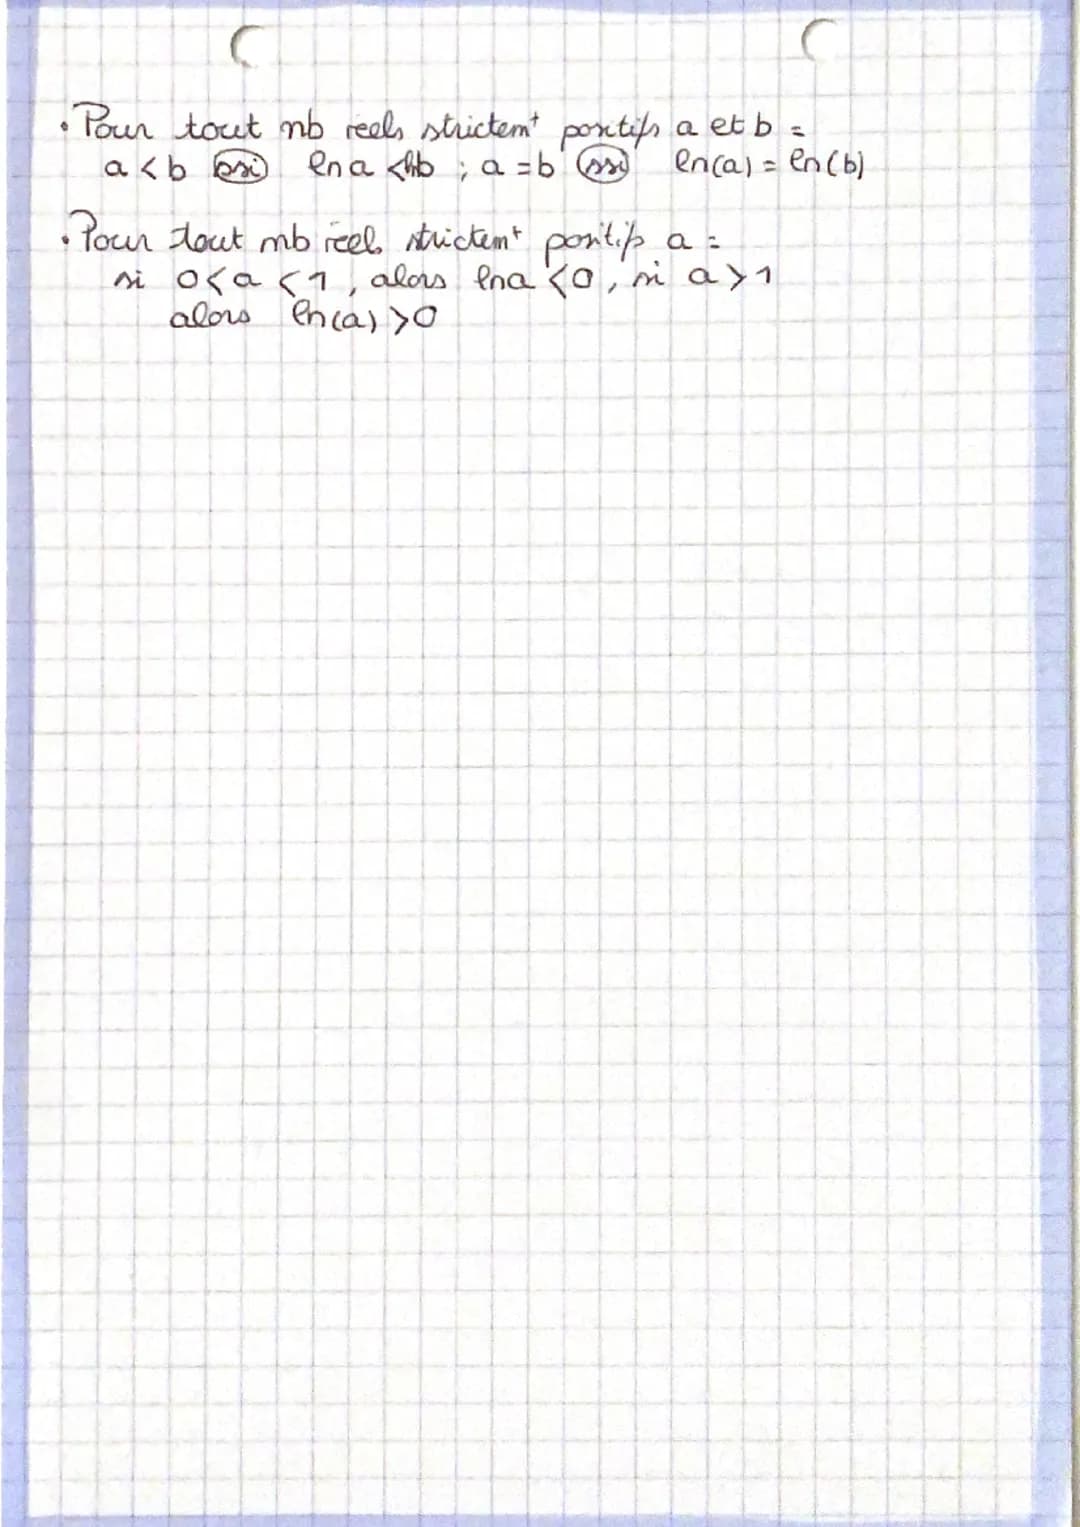 • Pour tout nb réels strictemt positifs a et b =
a < b ssi ln a < ln b ; a = b ssi ln(a) = ln(b)
• Pour tout nb réel strictemt positif a =
si 0 < a < 1, alors ln a < 0, si a > 1
alors ln(a) > 0